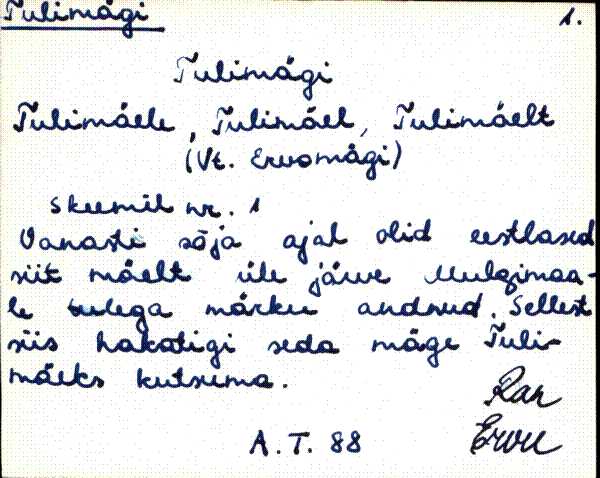 Tulimägi 1.
Tulimägi
Tulimäele, Tulimäel, Tulimäelt
(Vt. Ervomägi)
Skeemil nr. 1
Vanasti sõja ajal olid eestlased
siit mäelt üle järve Mulgimaa-
le tulega märku andnud. Sellest
siis hakatigi seda mäge Tuli-
mäeks kutsuma.
Ran
A.T. 88 Ervu